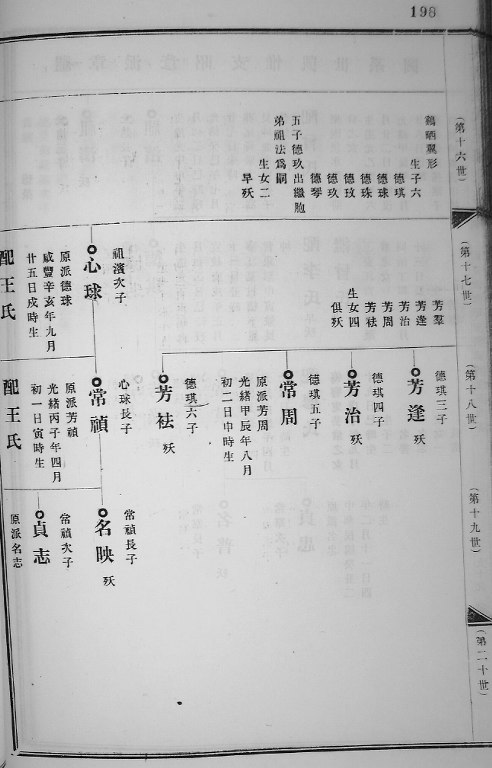 198
(第十六世)
鶴硒巽形
生子六
德琪
德球
德珠
德玫
德玖
德琴
五子德玖出繼胞
弟祖法爲嗣
生女二
早殀
(第十七世)
芳羣
芳逢
芳治
芳周
芳祛
生女四
俱殀
祖濱次子
心球
原派德球
咸豐辛亥年九月
廿五日戌時生
配王氏
(第十八世)
德琪三子
芳逢
殀
德琪四子
芳治
殀
德琪五子
常周
原派芳周
光緒甲辰年八月
初二日申時生
德琪六子
芳祛
殀
心球長子
常禎
原派芳禎
光緒丙子年四月
初一日寅時生
配王氏
(第十九世)
常禎長子
名映
殀
常禎次子
貞志
原派名志
(第二十世)